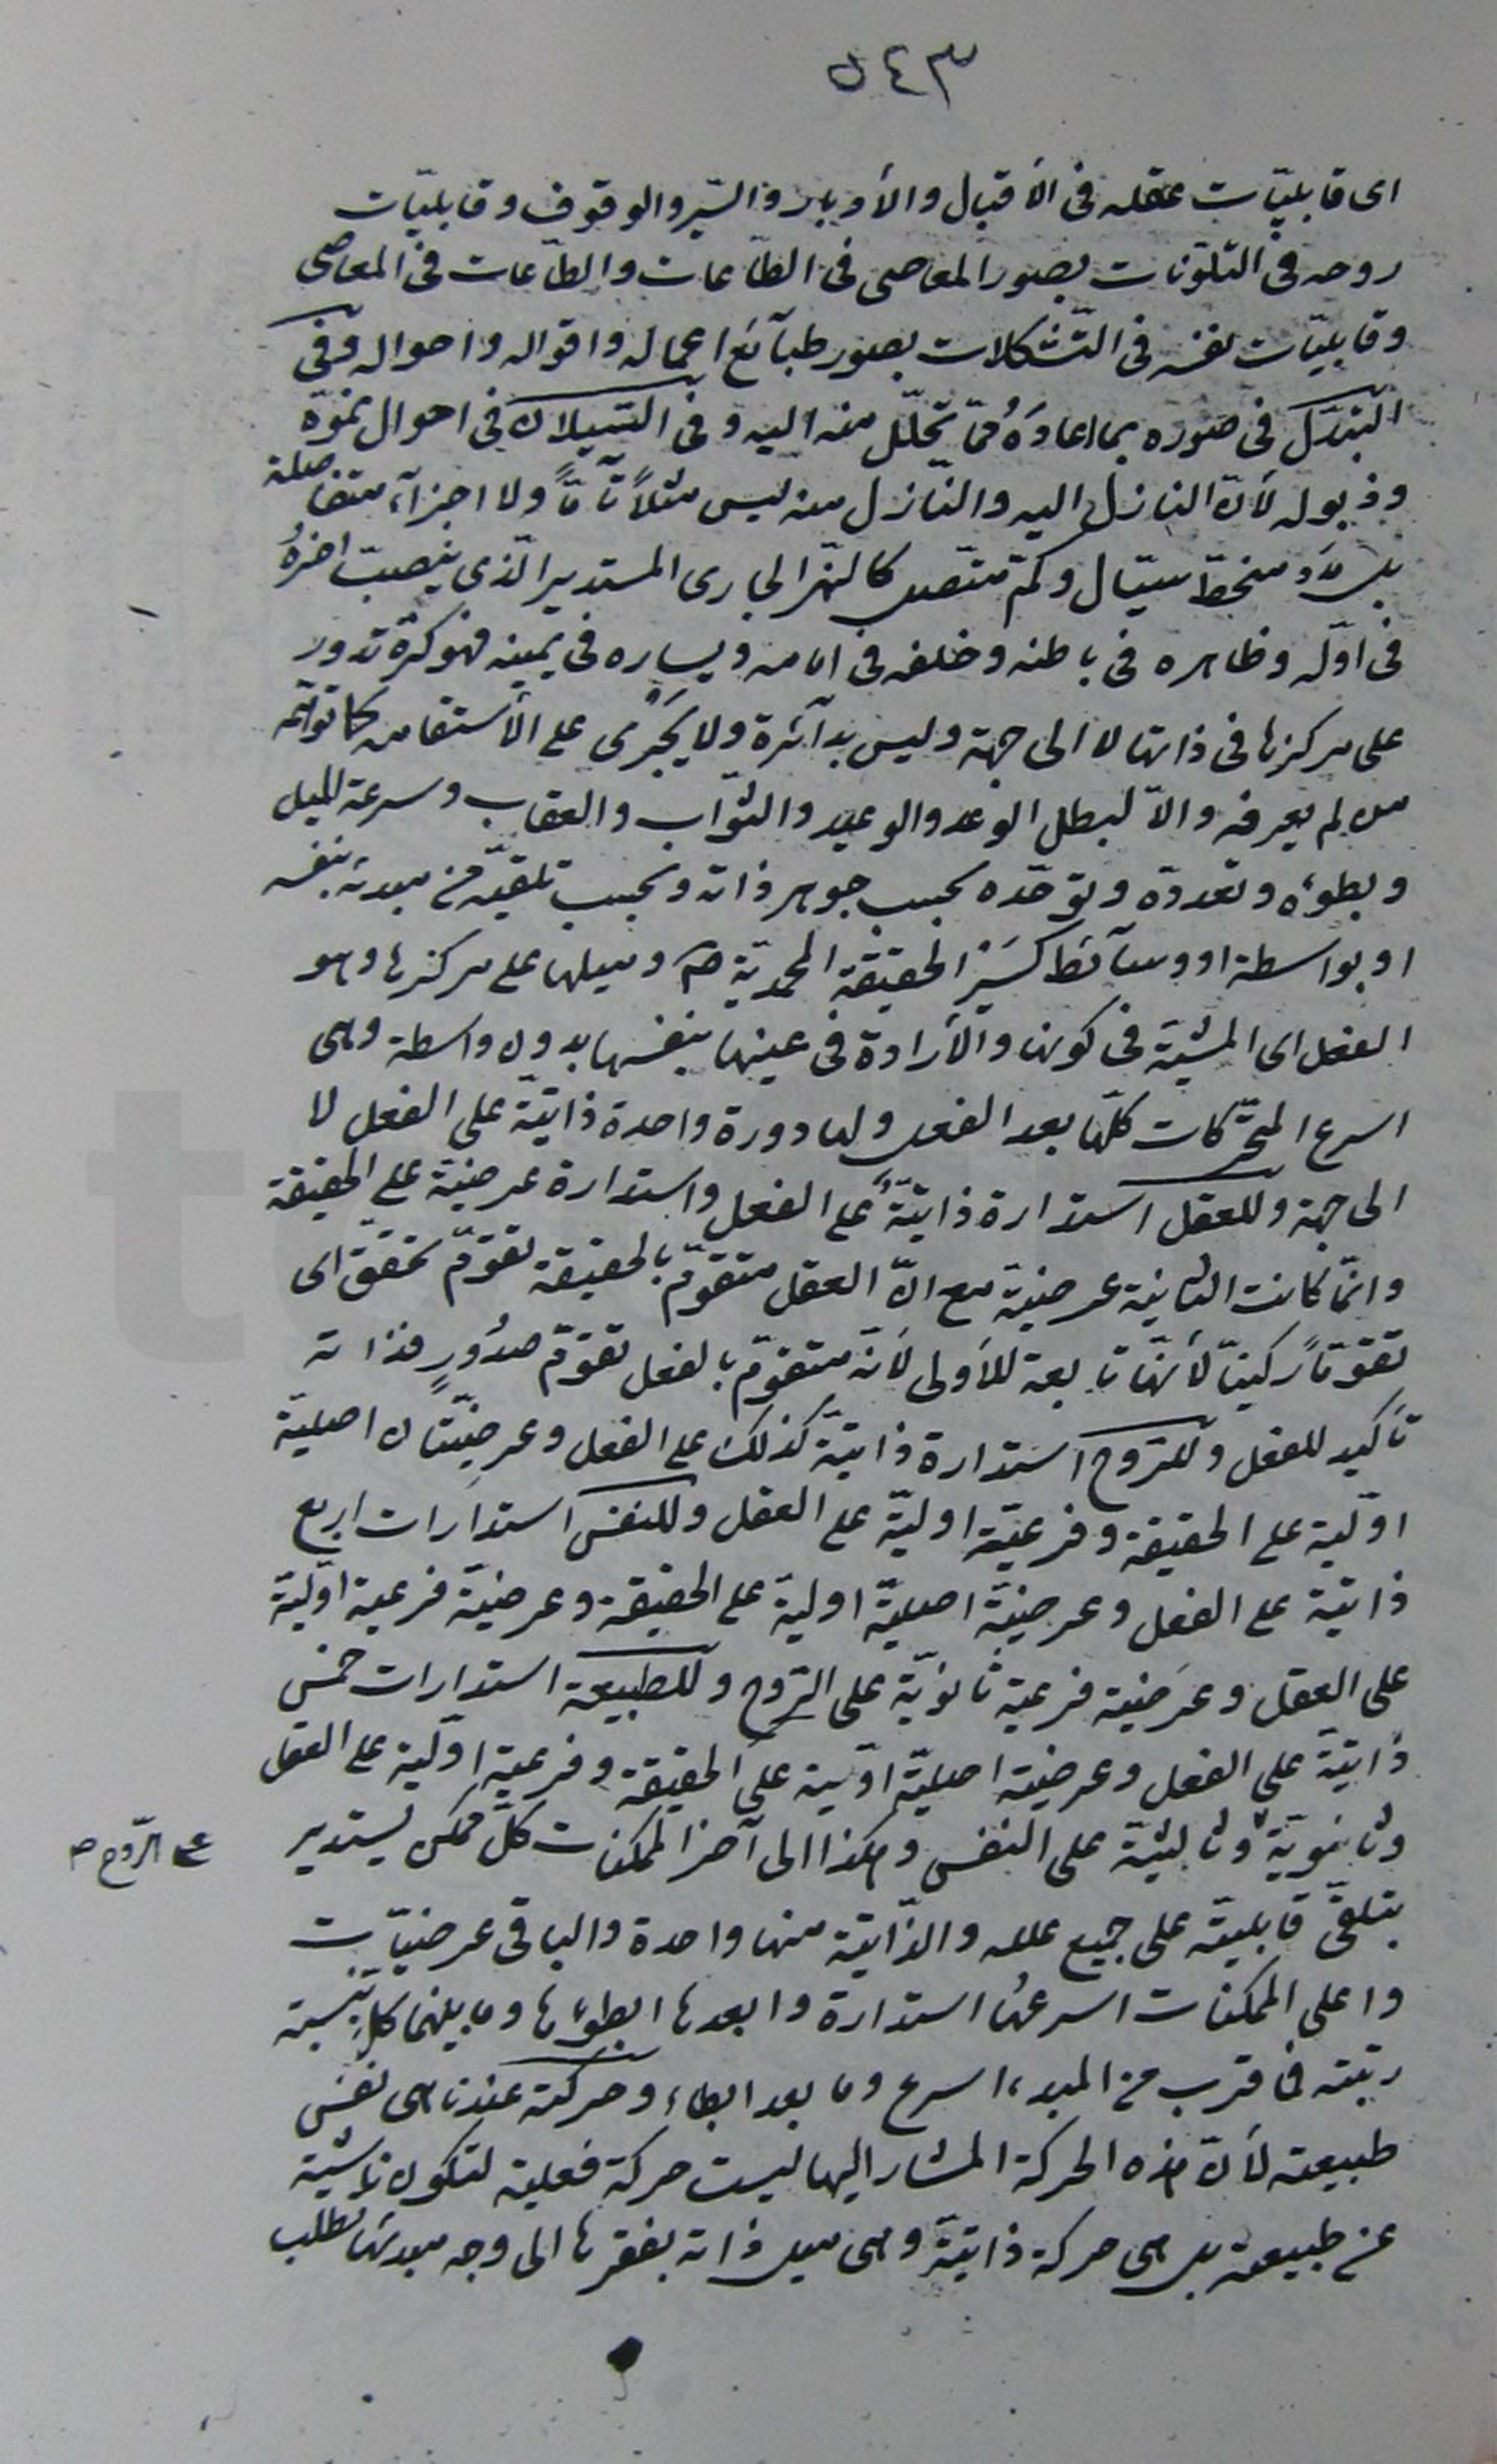 ٥٤٣
اى قابليّات عقله فى الأقبال والأدبار والسّير والوقوف وقابليّات
روحه فى التلوّنات بصور المعاصى فى الطّاعات والطّاعات فى المعاصى
وقابليّات نفسه فى التّشكلات بصور طبآئع اعماله واقواله واحواله وفى
التبدّل فى صوره بما اعادَهُ ممّا تحلّل منه اليه وفى السّيلان فى احوال نموّه
وذبوله لأنّ النازل اليه والنّازل منه ليس مثلاً تآمّاً ولا اجزآء متفاصلة
بل منحطّ سيّال وكمّ متّصل كالنّهر الجارى المستدير الّذى ينصبّ اخرهُ
فى اوّله وظاهره فى باطنه وخلفه فى امامه ويساره فى يمينه فهو كرة تدور
على مركزها فى ذاتها لا الى جهة وليس بدآئرة ولا يجرى على الأستقامه كما توهّمه
من لم يعرفه والاّ لبطل الوعد والوعيد والثّواب والعقاب وسرعة الميل
وبطوئه وتعدده وتوحّده بحسب جوهر ذاته وبحسب تلقيّه من مبدئه بنفسه
او بواسطة او وسآئط كسَير الحقيقة المحمديّة ص وميلها على مركزها وهو
الفعل اى المشيّة فى كونها والأرادة فى عينها بنفسها بدون واسطة وهى
اسرع المتحرّكات كلّها بعد الفعل ولها دورة واحدة ذاتيّة على الفعل لا
الى جهة وللعقل استدارة ذاتيّة على الفعل واستدارة عرضيّة على الحقيقة
وانّما كانت الثانية عرضيّة مع انّ العقل متقوّم بالحقيقة تقوّم تحقّق اى
تقوّماً ركنيّاً لأنّها تابعة للأولى لأنّه متقوّم بالفعل تقوّم صدُورٍ فذاته
تأكيد للفعل وللرّوح استدارة ذاتيّة كذلك على الفعل وعرضيّتان اصليّة
اوّلية على الحقيقة وفرعيّة اوليّة على العقل وللنفس استدارات اربع
ذاتية على الفعل وعرضيّة اصليّة اولية على الحقيقة وعرضيّة فرعية اوّليّة
على العقل وعرَضية فرعية ثانويّة على الرّوح وللطبيعة استدارات خمس
ذاتيّة على الفعل وعرضية اصليّة اوّلية على الحقيقة وفرعية اوّلية على العقل
وثانويّة وثالثيّة على النفس وهكذا الى آخر الممكنات كلّ ممكن يستدير
على الرّوح ص
بتلقّى قابليته على جميع علله والذّاتية منها واحدة والباقى عرضيّات
واعلى الممكنات اسرعها استدارة وابعدها ابطوئها وما بينهما كلٌّ بنسبة
رتبته فما قرب من المبدء اسرع وما بعد ابطاء وحركته عندنا هى نفس
طبيعته لأنّ هذه الحركة المشار اليها ليست حركة فعلية لتكون ناشئة
عن طبيعته بل هى حركة ذاتيّة وهى ميل ذاته بفقرها الى وجه مبدئها لطلب